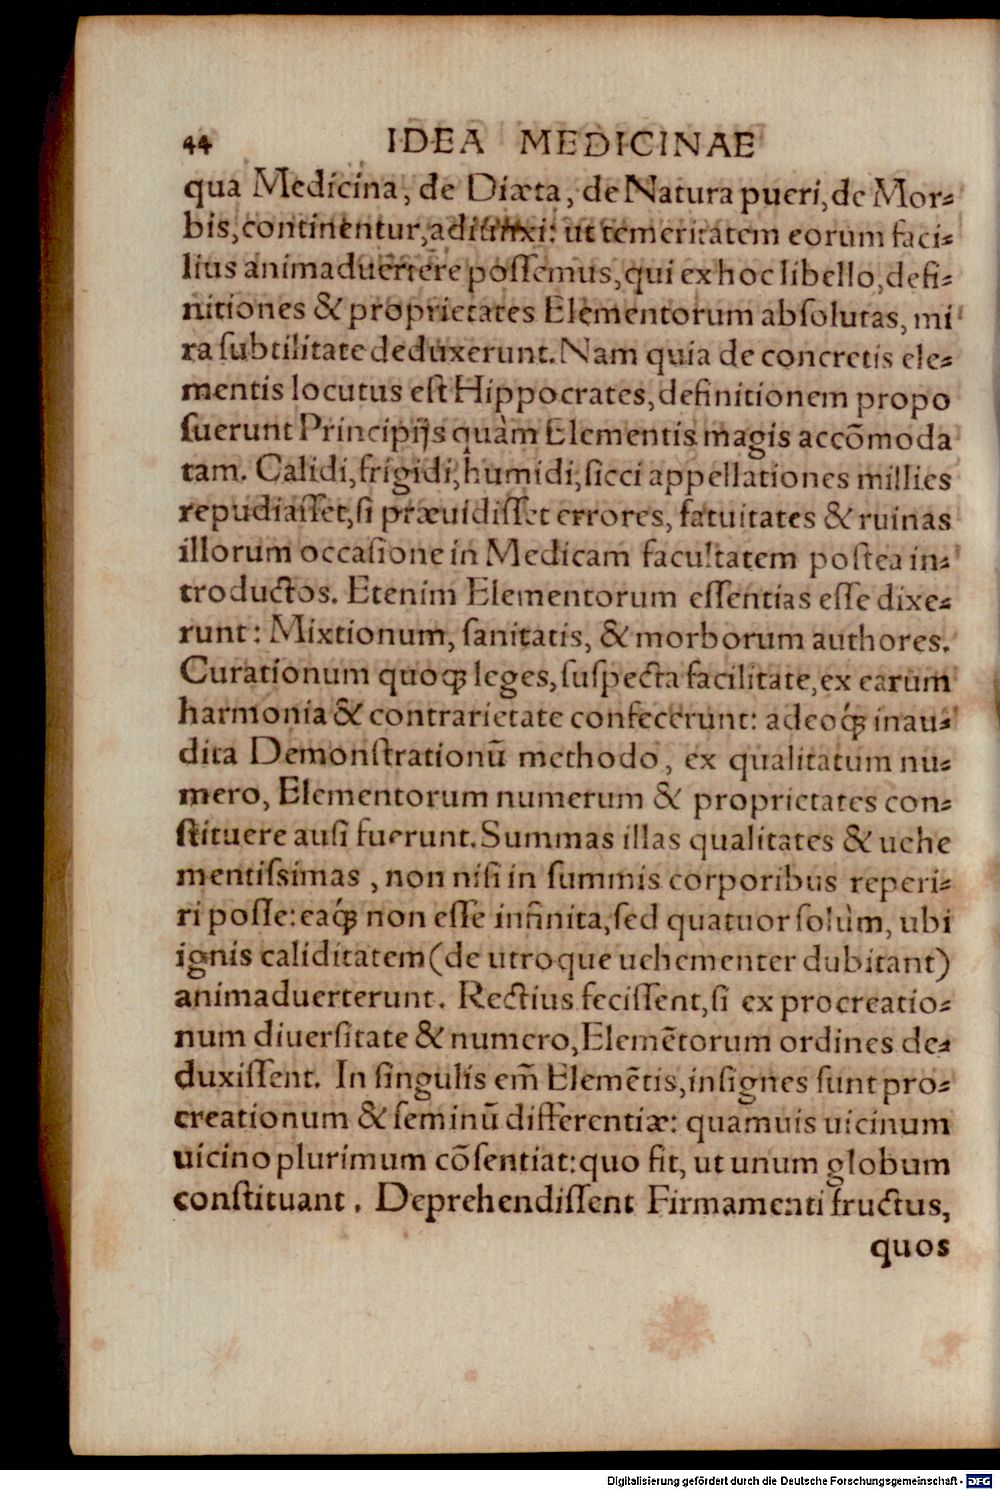 44 IDEA MEDICINAE
qua Medicina, de Diæta, de Natura pueri, de Mor-
bis, continentur, adiunxi: ut temeritatem eorum faci-
lius animaduertere poſſemus, qui ex hoc libello, defi-
nitiones & proprietates Elementorum abſolutas, mi
ra ſubtilitate deduxerunt. Nam quia de concretis ele-
mentis locutus eſt Hippocrates, definitionem propo
ſuerunt Principijs quàm Elementis magis accõmoda
tam. Calidi, frigidi, humidi, ſicci appellationes millies
repudiaſſet, ſi præuidiſſet errores, fatuitates & ruinas
illorum occaſione in Medicam facultatem poſtea in-
troductos. Etenim Elementorum eſſentias eſſe dixe-
runt: Mixtionum, ſanitatis, & morborum authores.
Curationum quoqꝫ leges, ſuſpecta facilitate, ex earum
harmonia & contrarietate confecerunt: adeoq́ꝫ inau-
dita Demonſtrationũ methodo, ex qualitatum nu-
mero, Elementorum numerum & proprietates con-
ſtituere auſi fuerunt. Summas illas qualitates & uehe
mentiſsimas, non niſi in ſummis corporibus reperi-
ri poſſe: eaq́ꝫ non eſſe infinita, ſed quatuor ſolùm, ubi
ignis caliditatem (de utroque uehementer dubitant)
animaduerterunt. Rectius feciſſent, ſi ex procreatio-
num diuerſitate & numero, Elemẽtorum ordines de-
duxiſſent. In ſingulis em̃ Elemẽtis, inſignes ſunt pro-
creationum & ſeminũ differentiæ: quamuis uicinum
uicino plurimum cõſentiat: quo fit, ut unum globum
conſtituant. Deprehendiſſent Firmamenti fructus,
quos
Digitalisierung gefördert durch die Deutsche Forschungsgemeinschaft - DFG